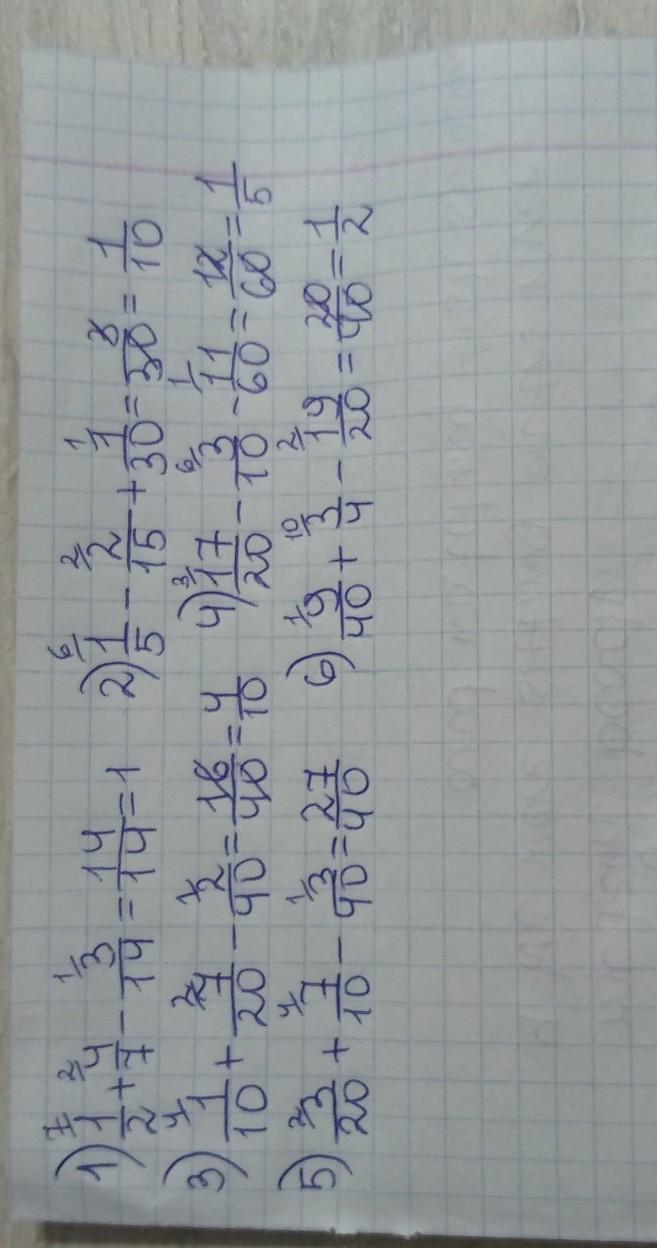 1) ⁷⁄ 1/2 + ²⁄ 4/7 - ¹⁄ 3/14 = 14/14 = 1 2) ⁶⁄ 1/5 - ²⁄ 2/15 + ¹⁄ 1/30 = 3/30 = 1/10
3) ⁴⁄ 1/10 + ²⁄ 7/20 - ¹⁄ 2/40 = 16/40 = 4/10 4) ³⁄ 17/20 - ⁶⁄ 3/10 - ¹⁄ 11/60 = 12/60 = 1/5
5) ²⁄ 3/20 + ⁴⁄ 7/10 - ¹⁄ 3/40 = 27/40 6) ¹⁄ 9/40 + ¹⁰⁄ 3/4 - ²⁄ 19/20 = 20/40 = 1/2